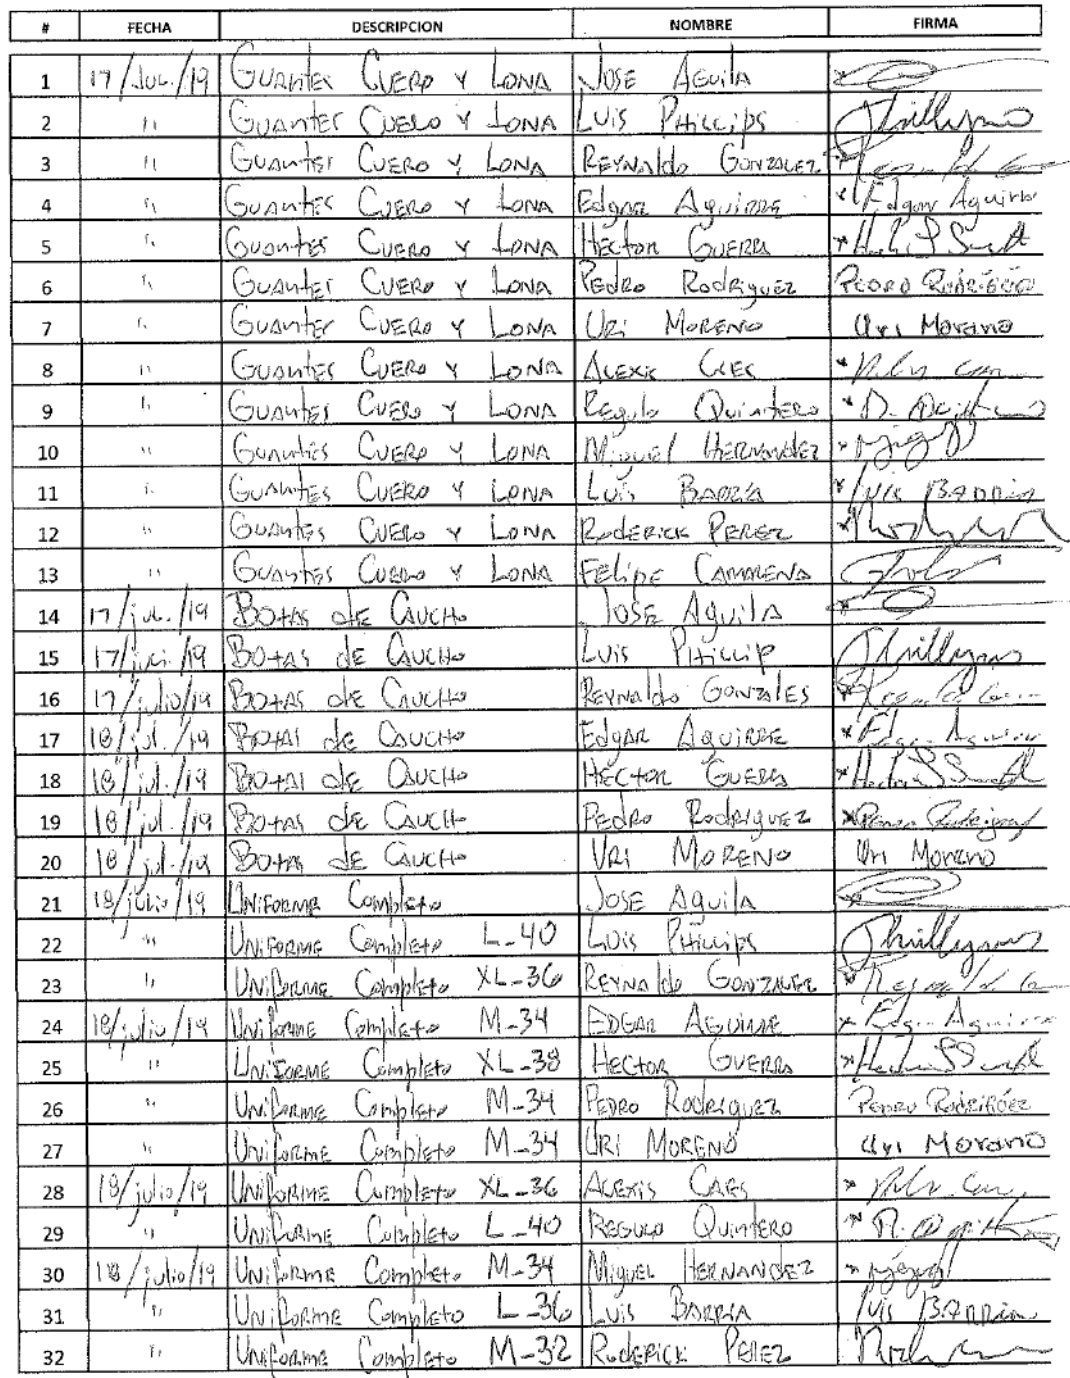 # FECHA DESCRIPCION NOMBRE FIRMA
1 17/JUL./19 GUANTES CUERO Y LONA JOSE AGUILA
2 " GUANTES CUERO Y LONA LUIS PHILLIPS Phillips
3 " GUANTES CUERO Y LONA REYNALDO GONZALEZ
4 " GUANTES CUERO Y LONA EDGAR AGUIRRE x Edgar Aguirre
5 " GUANTES CUERO Y LONA HECTOR GUERRA
6 " GUANTES CUERO Y LONA PEDRO RODRIGUEZ PEDRO RODRIGUEZ
7 " GUANTES CUERO Y LONA URI MORENO Uri Moreno
8 " GUANTES CUERO Y LONA ALEXIS CAES
9 " GUANTES CUERO Y LONA REGULO QUINTERO
10 " GUANTES CUERO Y LONA MIGUEL HERNANDEZ
11 " GUANTES CUERO Y LONA LUIS BARRÍA x Luis BARRIA
12 " GUANTES CUERO Y LONA RODERICK PEREZ
13 " GUANTES CUERO Y LONA FELIPE CAMARENA
14 17/jul./19 BOTAS DE CAUCHO JOSE AGUILA
15 17/jul./19 BOTAS DE CAUCHO LUIS PHILLIP
16 17/julio/19 BOTAS DE CAUCHO REYNALDO GONZALES
17 18/jul./19 BOTAS DE CAUCHO EDGAR AGUIRRE
18 18/jul./19 BOTAS DE CAUCHO HECTOR GUERRA
19 18/jul./19 BOTAS DE CAUCHO PEDRO RODRIGUEZ
20 18/jul./19 BOTAS DE CAUCHO URI MORENO Uri Moreno
21 18/julio/19 UNIFORME Completo JOSE AGUILA
22 " UNIFORME Completo L-40 LUIS PHILLIPS
23 " UNIFORME Completo XL-36 REYNALDO GONZALEZ
24 18/julio/19 UNIFORME Completo M-34 EDGAR AGUIRRE
25 " UNIFORME Completo XL-38 HECTOR GUERRA
26 " UNIFORME Completo M-34 PEDRO RODRIGUEZ PEDRO RODRIGUEZ
27 " UNIFORME Completo M-34 URI MORENO Uri Moreno
28 18/julio/19 UNIFORME Completo XL-36 ALEXIS CAES
29 " UNIFORME Completo L-40 REGULO QUINTERO
30 18/julio/19 UNIFORME Completo M-34 MIGUEL HERNANDEZ
31 " UNIFORME Completo L-36 LUIS BARRÍA Luis BARRIA
32 " UNIFORME Completo M-32 RODERICK PEREZ